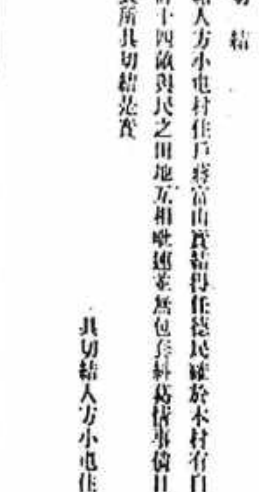 切 結
結人方小屯村住戶蔣富山實結得任德民確於本村有自
十四畝與民之田地互相毗連並無包套糾葛情事倘日
所具切結是實
具切結人方小屯住